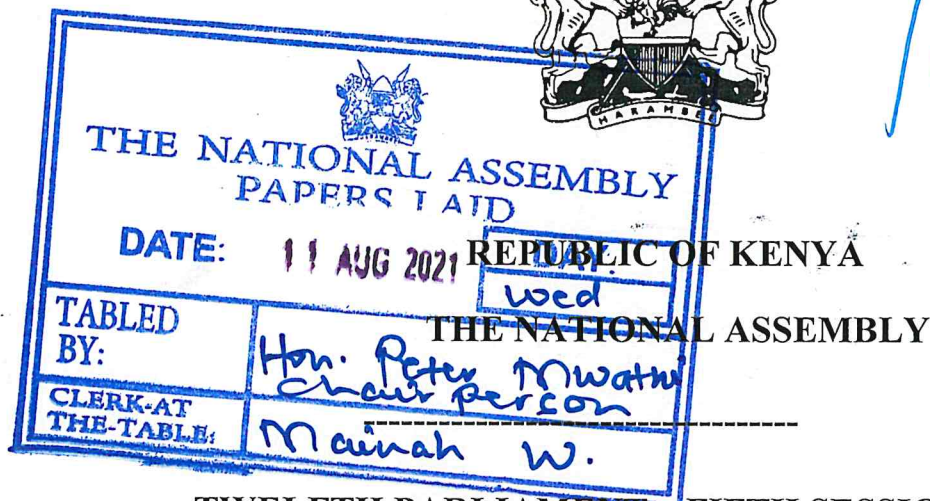 HARAMBEE
THE NATIONAL ASSEMBLY
PAPERS LAID
DATE: 11 AUG 2021 DAY.
wed
TABLED BY: Hon. Peter Mwathi
Chairperson
CLERK-AT THE-TABLE: Mainah W.
REPUBLIC OF KENYA
THE NATIONAL ASSEMBLY
--------------------------------
TWELFTH PARLIAMENT – FIFTH SESSION